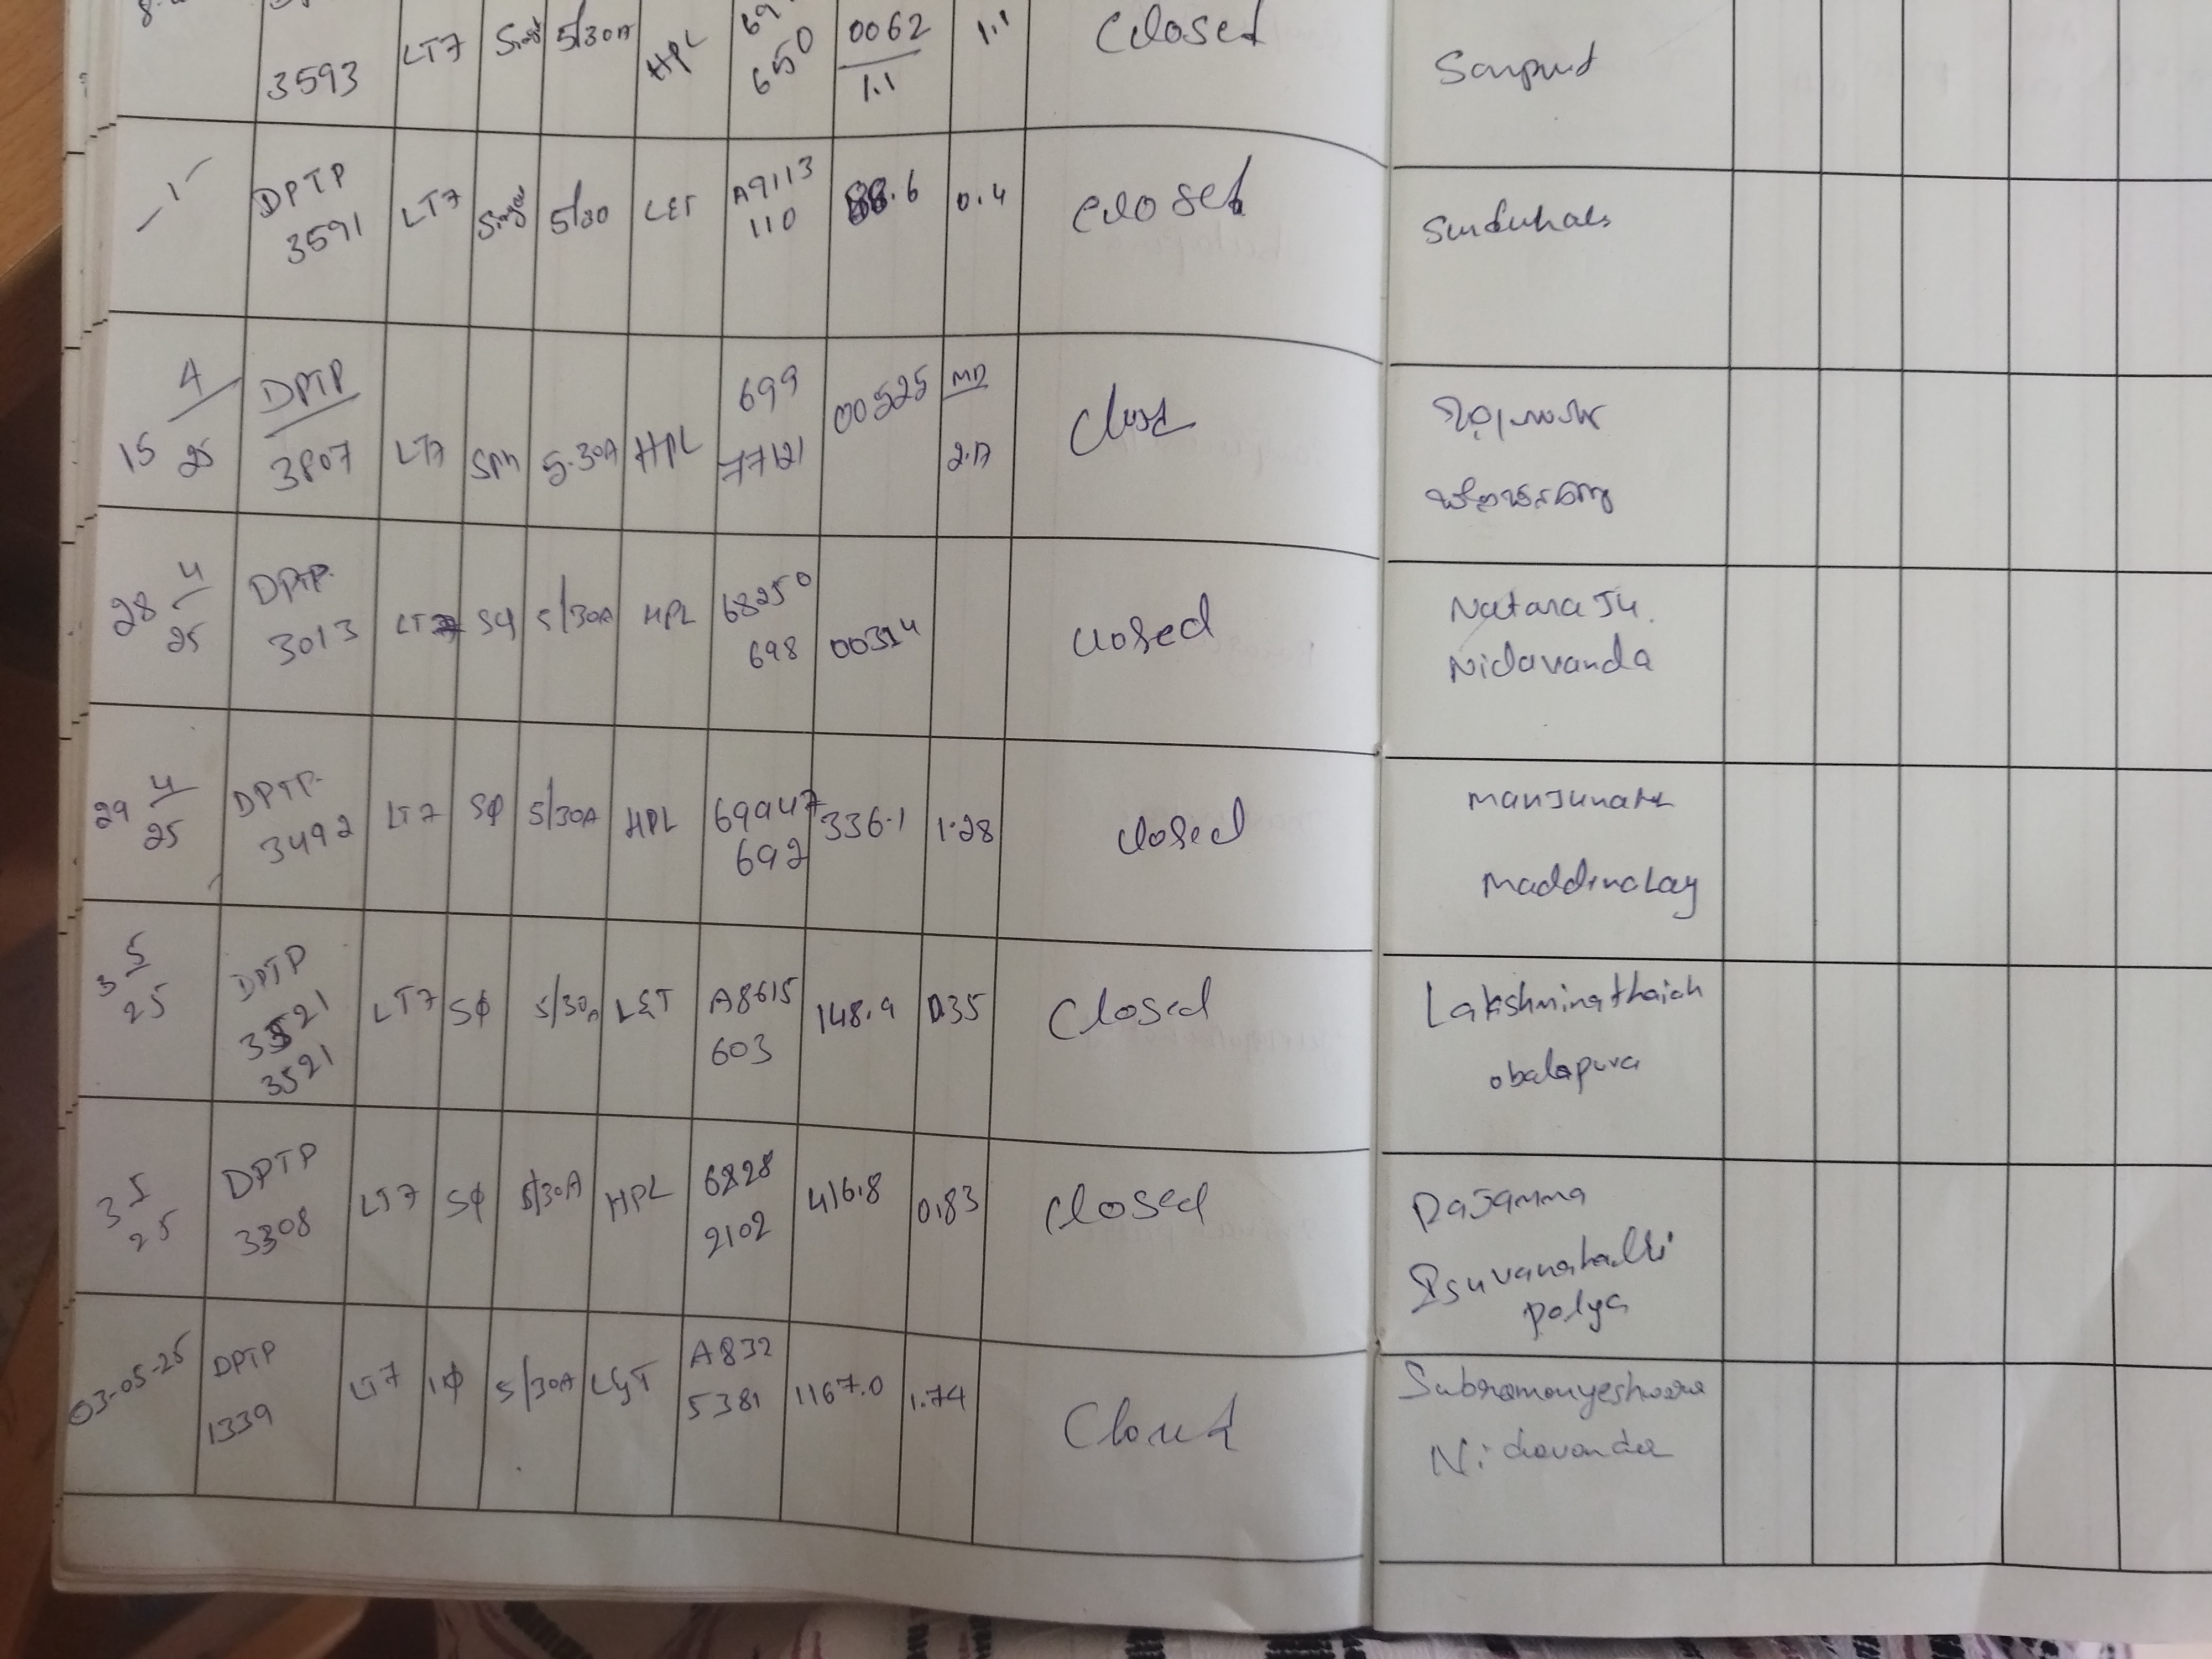 3593 LT7 5/30A HPL 650 0062 1.1 Closed
1.1
DPTP 3591 LT7 Single 5/30 L&T A9113 110 88.6 0.4 Closed
15 4/25 DPTP 3807 LT7 SPH 5-30A HPL 699 77121 00525 MD 2.17 Close
28 4/25 DPTP 3013 LT7 Sφ 5/30A HPL 68250 698 00314 Closed Nataraju. Nidavanda
29 4/25 DPTP 3492 LT7 Sφ 5/30A HPL 69947 692 336.1 1.28 Closed Manjunath
3 5/25 DPTP 3521 3521 LT7 Sφ 5/30A L&T A8615 603 148.9 0.35 Closed Lakshminathaiah obalapura
3 5/25 DPTP 3308 LT7 Sφ 5/30A HPL 6828 2102 416.8 0.83 Closed Rajamma Isuvanahalli palya
03-05-25 DPTP 1339 LT7 1φ 5/30A L&T A832 5381 1167.0 1.74 Closed Subramanyeshwara Nidavanda